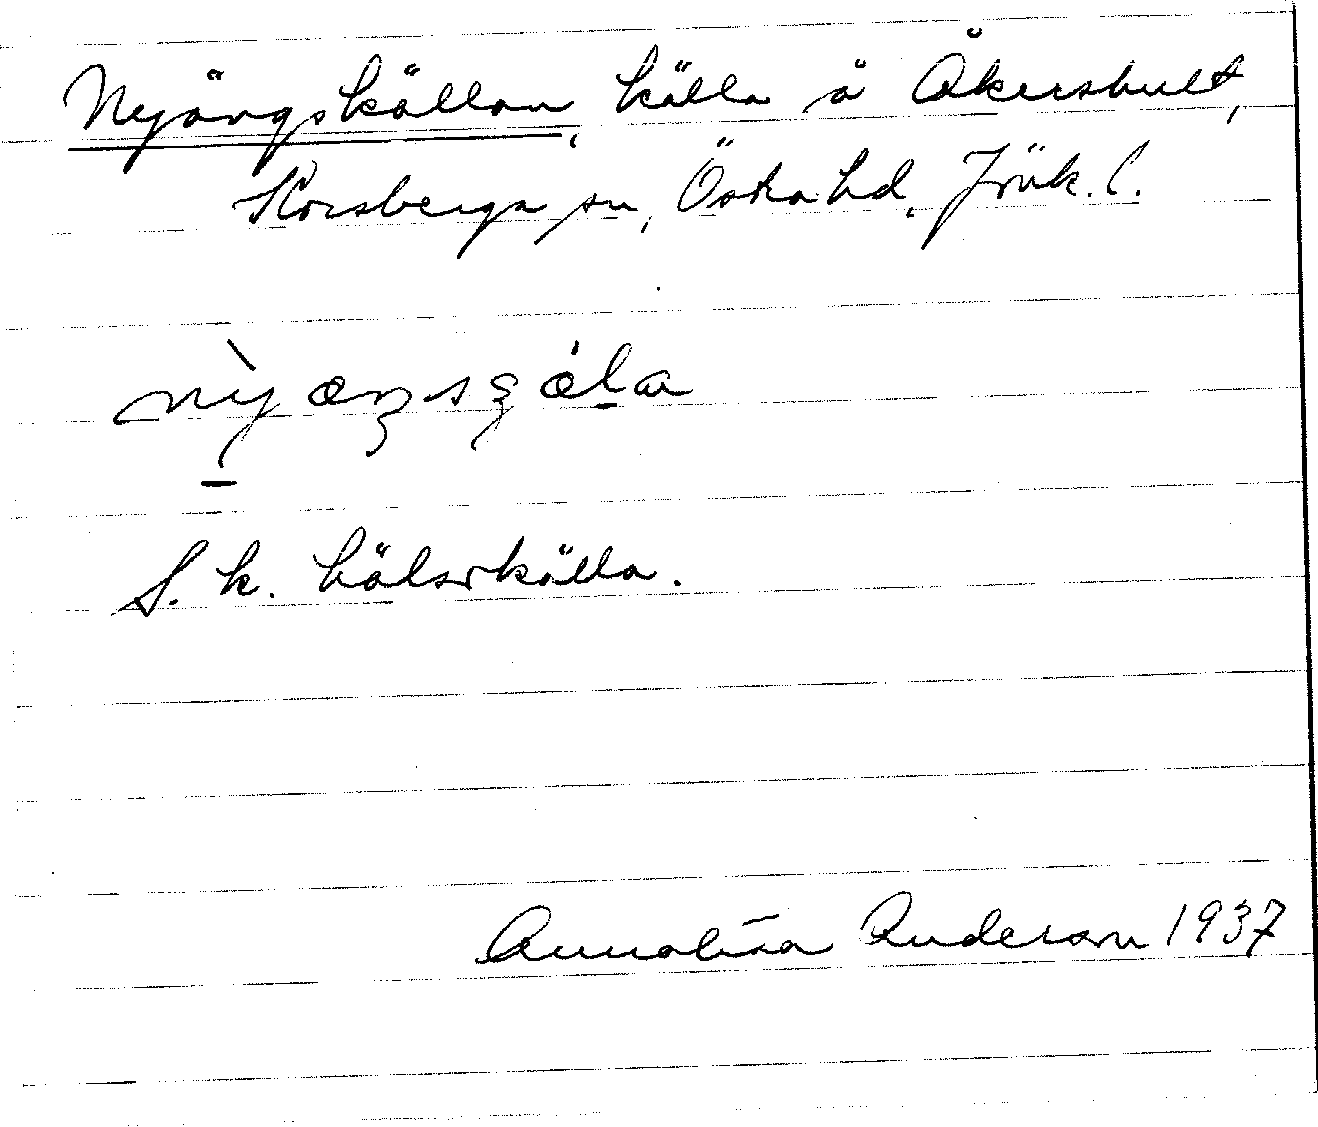 Nyängskällan, källa å Åkershult,
Korsberga sn, Östra hd, Jönk. l.
S. k. hälsokälla.
Annalisa Anderson 1937